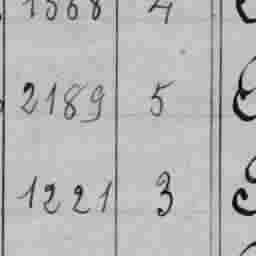 1568 4
2189 5
1221 3